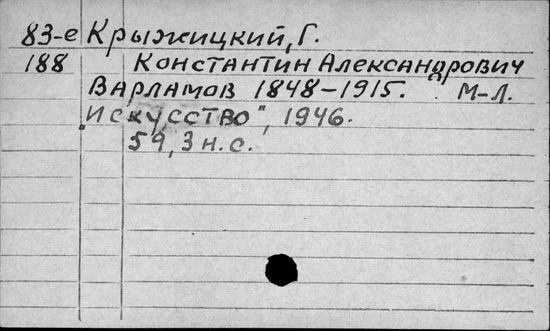 83-е Крыжицкий, Г.
188 Константин Александрович
Варламов 1848-1915. М-Л.
"Искусство", 1946.
59, 3 н. с.